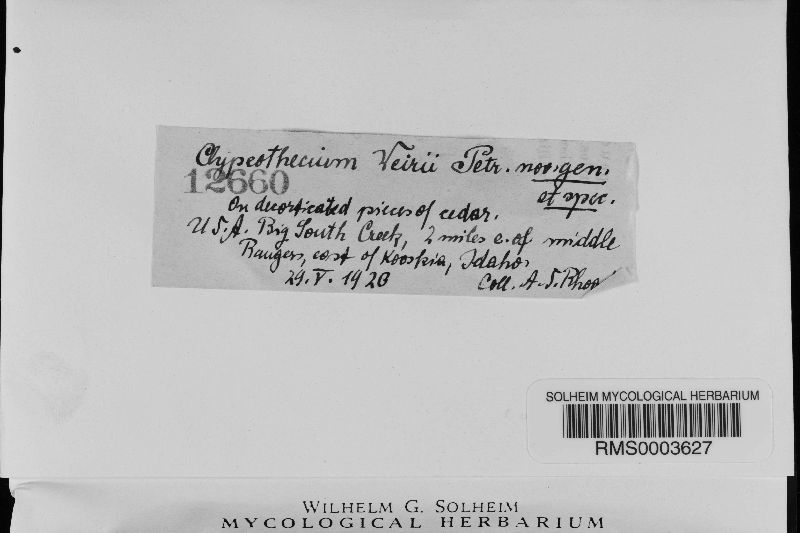 Clypeothecium Veirii Petr. nov. gen.
et spec.
12660
On decorticated pieces of cedar.
U.S.A. Big South Creek, 2 miles e. of middle
Rangers, east of Kooskia, Idaho,
29. V. 1920 Coll. A. S. Rhoo
SOLHEIM MYCOLOGICAL HERBARIUM
RMS0003627
WILHELM G. SOLHEIM
MYCOLOGICAL HERBARIUM